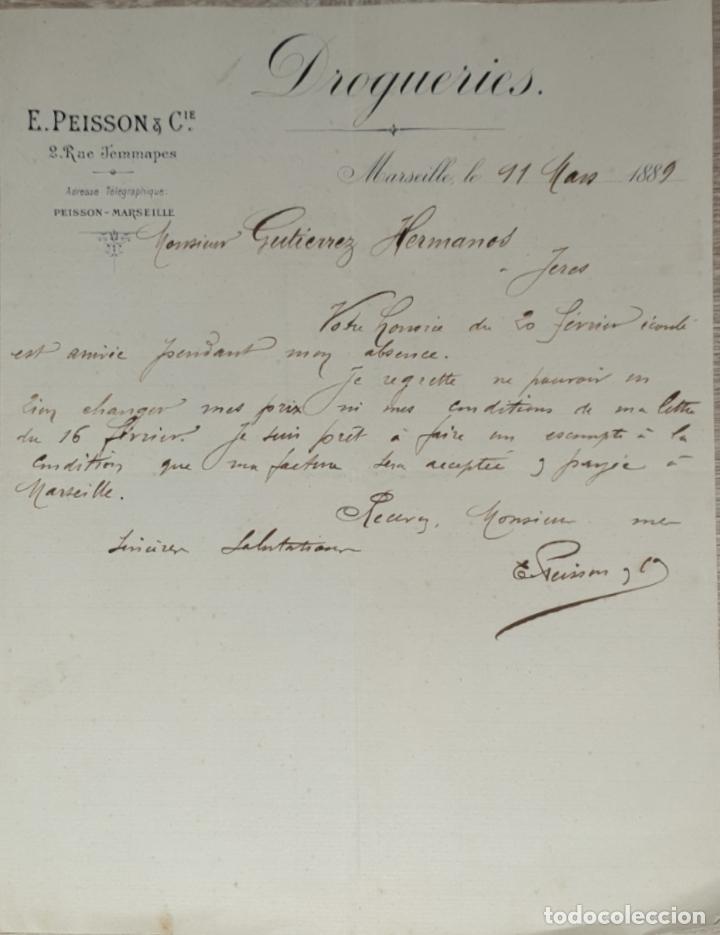 Drogueries.
E. PEISSON & CIE
2. Rue Jemmapes
Adresse Télégraphique:
PEISSON-MARSEILLE
Marseille, le 11 Mars 1889
Monsieur Gutierrez Hermanos
Jeres
Votre honorée du 20 février écoulé
est arrivée pendant mon absence.
Je regrette ne pouvoir en
rien changer mes prix ni mes conditions de ma lettre
du 16 février. Je suis prêt à faire un escompte à la
condition que ma facture sera acceptée & payée à
Marseille.
Recevez, Monsieur mes
sincères salutations
E. Peisson & Co
todocoleccion
todocoleccion.net